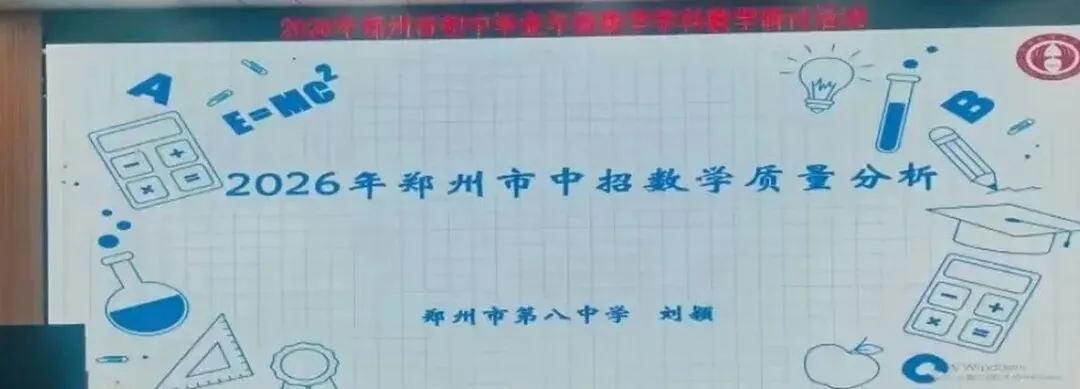 A
E=MC²
B
2026年郑州市中招数学质量分析
郑州市第八中学 刘颖
Windows